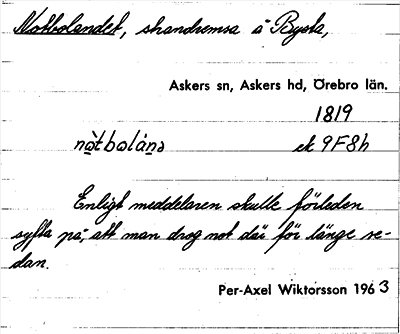 Notbolandet, strandremsa å Bysta,
Askers sn, Askers hd, Örebro län.
1819
nòtbolánə ek 9F8h
Enligt meddelaren skulle förleden
syfta på, att man drog not där för länge se-
dan.
Per-Axel Wiktorsson 1963